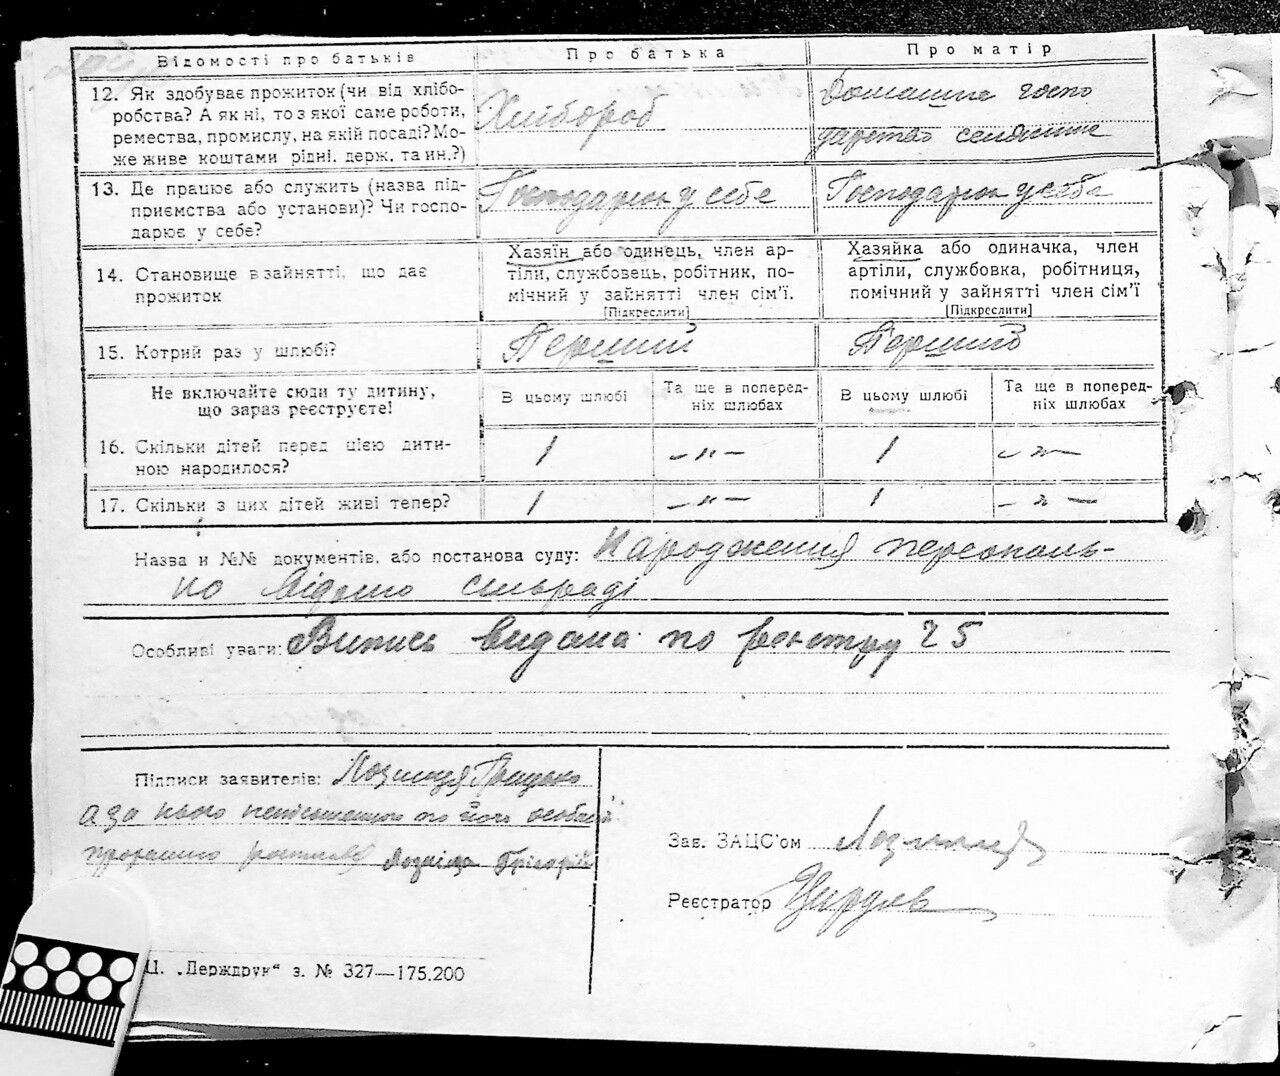 Відомості про батьків Про батька Про матір
12. Як здобуває прожиток (чи від хлібо-
робства? А як ні, то з якої саме роботи,
ремества, промислу, на якій посаді? Мо-
же живе коштами рідні, держ. та ин.?)
Хлібороб
Домашнє госпо
дарство селянське
13. Де працює або служить (назва під-
приємства або установи)? Чи госпо-
дарює у себе?
Господарює у себе
Господарює у себе
14. Становище в зайнятті, що дає
прожиток
Хазяїн або одинець, член ар-
тіли, службовець, робітник, по-
мічний у зайнятті член сім'ї.
[Підкреслити]
Хазяйка або одиначка, член
артіли, службовка, робітниця,
помічний у зайнятті член сім'ї
[Підкреслити]
15. Котрий раз у шлюбі? Перший Перший
Не включайте сюди ту дитину,
що зараз реєструєте!
В цьому шлюбі
Та ще в поперед-
ніх шлюбах
В цьому шлюбі
Та ще в поперед-
ніх шлюбах
16. Скільки дітей перед цією дити-
ною народилося?
1 -"- 1 -"-
17. Скільки з цих дітей живі тепер? 1 -"- 1 -"-
Назва и №№ документів, або постанова суду: Народження персональ-
но відомо сільраді
Особливі уваги: Випись видана по реєстру 25
Підписи заявителів: Лозниця
а за нього неписьменного по його особий
Лозниця Грігорій
Зав. ЗАЦС'ом Лозниця
Реєстратор
Ц. „Держдрук“ з. № 327—175.200